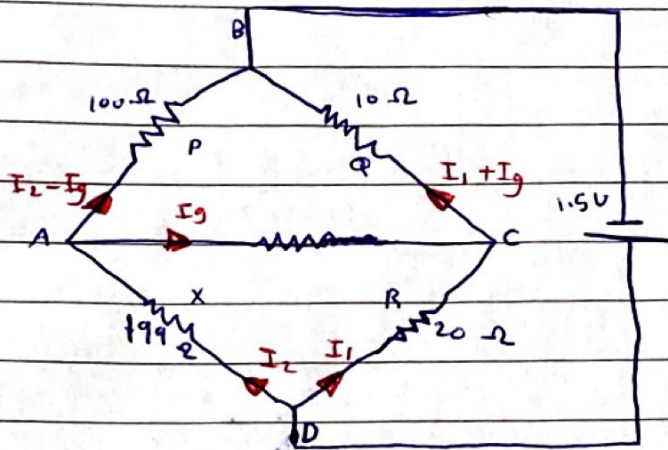 B
100 Ω
10 Ω
P
Q
I₂-Ig
I₁+Ig
Ig
1.5V
A
C
X
R
199 Ω
20 Ω
I₂
I₁
D